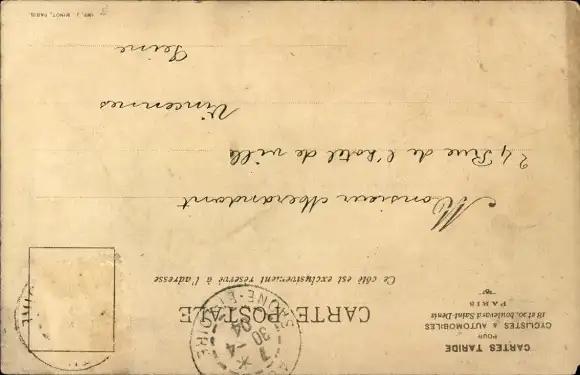 CARTES TARIDE
POUR
CYCLISTES & AUTOMOBILES
18 et 20, boulevard Saint-Denis
PARIS
CARTE POSTALE
Ce côté est exclusivement réservé à l'adresse
7 * -4
30
04
SAONE-ET-LOIRE
Monsieur
24 Rue de l'hotel de ville
Vincennes
Seine
IMP. J. MINOT, PARIS